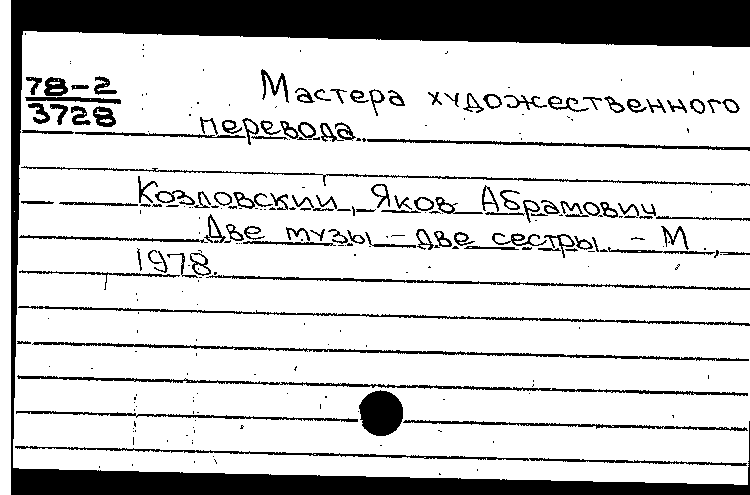 78-2
3728
Мастера художественного
перевода
Козловский, Яков Абрамович
Две музы – две сестры. – М.,
1978.